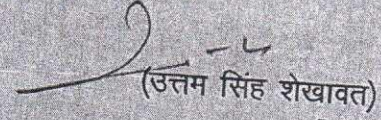 (उत्तम सिंह शेखावत)